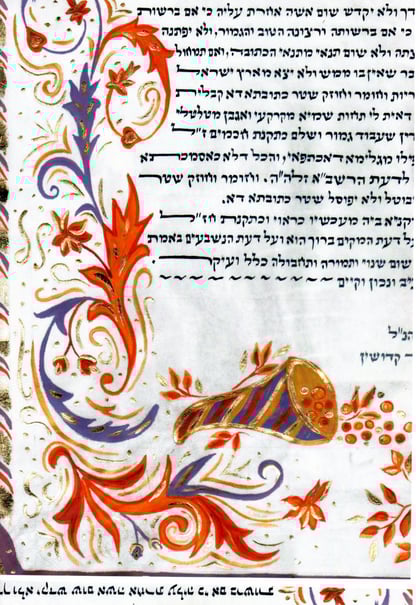 דך ולא יקדש שום אשה אחרת עליה כי אם ברשותה
כי אם ברשותה ורצונה הטוב והגמור, ולא יפתנה
צתה ולא שום תנאי מתנאי הכתובה, ואם תמחול
בר שאין בו ממש ולא יצא מארץ ישראל
ריות וחומר וחוזק שטר כתובתא דא קבלית
דאית לי תחות שמיא מקרקעי ואגבן מטלטלי
ין שעבוד גמור ושלם כתקנת חכמים ז"ל
אפילו מגלימא דאכתפאי, והכל דלא כאסמכתא
לדעת הרשב"א זלה"ה. וחומר וחוזק שטר
יבוטל ולא יפוסל שטר כתובתא דא.
קנא ביה מעכשיו כראוי וכתקנת חז"ל
על דעת המקום ברוך הוא ועל דעת הנשבעים באמת
שום שנוי ותמורה ותחבולה כלל ועיקר.
יב ונכון וקיים
הנ"ל
קדושין
ולא יקדש שום אשה אחרת עליה כי אם ברשותה